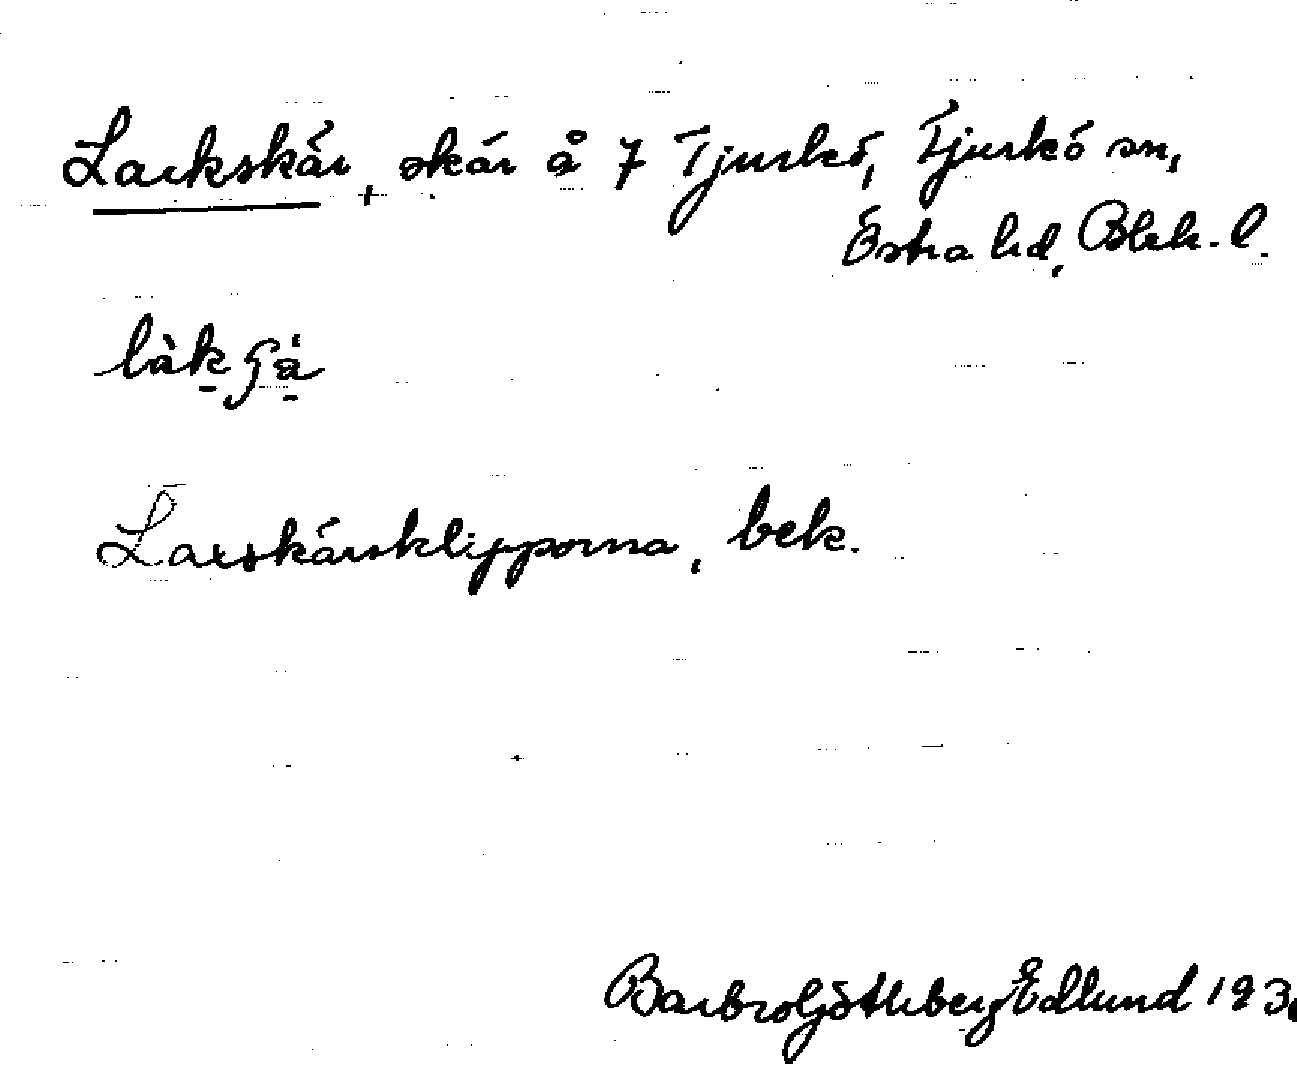 Lackskär, skär å 7 Tjurkö, Tjurkö sn,
Östra hd, Blek. l.
Laxskärsklipporna, bek.
Barbro Göthberg Edlund